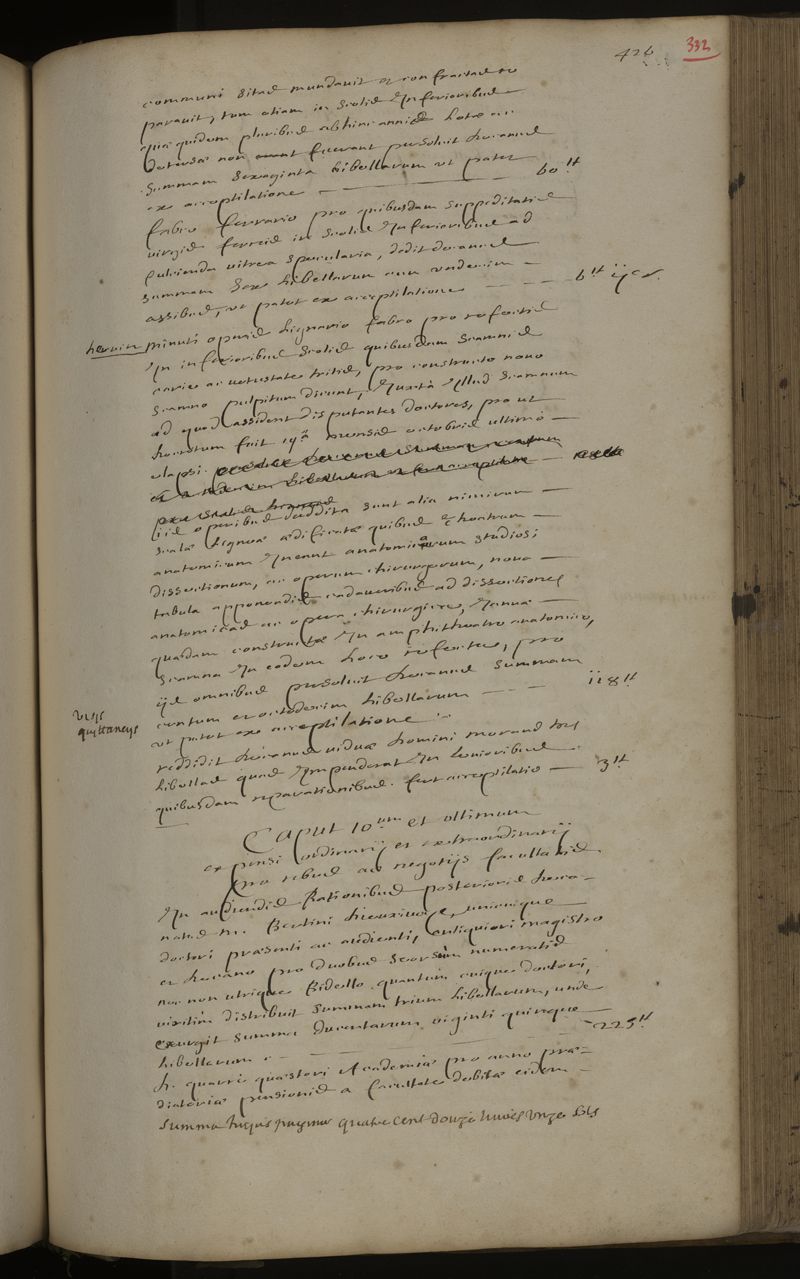 426 332
communi sitas mundavit et confractas re
paravit, tum etiam in scolis Inferioribus
quæ quidem pluribus abhinc annis
detersæ non fuerant persolvit Decanus
summam sexaginta libellarum ut patet
ex acceptilatione 60ᵗᵗ
fabro ferrario pro quibusdam suppeditatis
virgis ferreis in scolis Inferioribus ad
fulcienda vitrea specularia, dedit decanus
summam sex libellarum cum undecim
assibus, ut patet ex acceptilatione 6ᵗᵗ
minuti operis Lignario fabro pro refectis
In inferioribus scolis quibusdam scamnis
carie ac vetustate tritis, pro constructo novo
scamno pulpitum dicunt, Iuxtà Illud scamnum
ad quod assident disputantes doctores, pro ut
decretum fuit 19ᵃ mensis octobris ultimò
elapsi
iis operibus addita sunt alia nimirum
scalæ ligneæ ædificatæ quibus theatrum
anatomicum Ineunt anatomicarum studiosi
dissectionum, ac operum chirurgicorum, nova
tabula apponendis cadaveribus ad dissectiones
anatomicas ac opera chirurgiæ, Ianua
quædam constructæ In amphitheatro anatomico,
scamna In eodem loco refecta, pro
iis omnibus persolvit decanus summam
centum et octodecim libellarum 118ᵗᵗ
ut patet ex acceptilatione
visis
quittancijs
reddidit decanus viduæ homini morand tres
libellas quas Impenderat In levioribus
quibusdam reparationibus. fert acceptilatio 3ᵗᵗ
Caput 10ᵘᵐ et ultimum
expensi ordinarij et extraordinarij
pro rebus ac negotijs facultatis
In audiendis Rationibus posterioris deca-
natus M. Bertini Dieuxivoye, unicuique
doctori præsenti ac audienti, antiquiori magistro
et decano pro duobus seorsim numeratis
nec non utrique Bidello quantùm cuique doctori,
viritim distribuit summam trium libellarum, unde
exurgit summa ducentarum viginti quinque
libellarum 225ᵗᵗ
quæstori Academiæ pro anno præ-
diatoriæ pensionis a facultate debitæ eidem
Summa hujus paginæ quatre cent douze livres unze sols